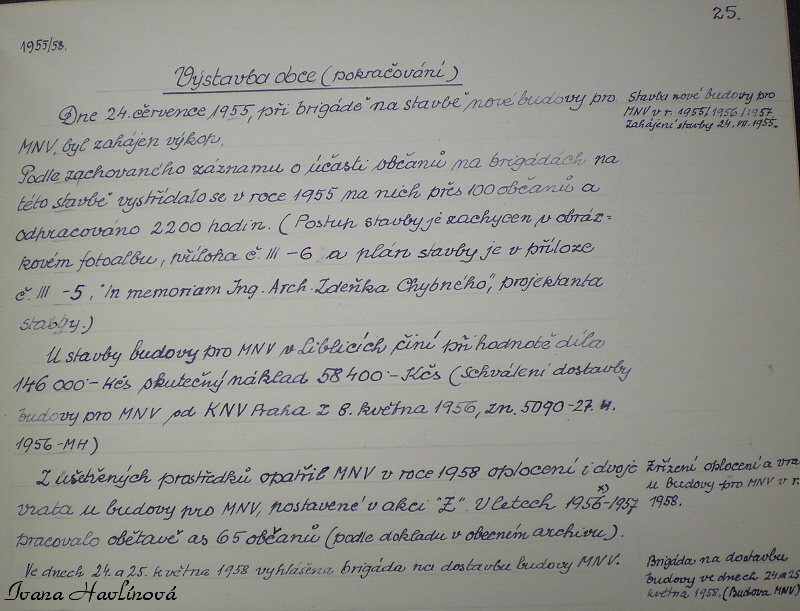 25.
1955/58.
Výstavba obce (pokračování)
Dne 24. července 1955, při brigádě "na stavbě" nové budovy pro
MNV, byl zahájen výkop.
Podle zachovaného záznamu o účasti občanů na brigádách na
této stavbě vystřídalo se v roce 1955 na nich přes 100 občanů a
odpracováno 2200 hodin. (Postup stavby je zachycen v obráz=
kovém fotoalbu, příloha č. III - 6 a plán stavby je v příloze
č. III - 5, "In memoriam Ing. Arch. Zdeňka Chybného", projektanta
stavby.)
U stavby budovy pro MNV v Liblicích činí při hodnotě díla
146 000 - Kčs skutečný náklad 58 400 - Kčs (Schválení dostavby
budovy pro MNV od KNV Praha z 8. května 1956, zn. 5090-27.
1956-MH)
Z ušetřených prostředků opatřil MNV v roce 1958 oplocení i dvoje
vrata u budovy pro MNV, postavené v akci "Z". V letech 1956-1957 x)
pracovalo obětavě as 65 občanů (podle dokladu v obecném archivu).
Ve dnech 24. a 25. května 1958 vyhlášena brigáda na dostavbu budovy MNV.
Stavba nové budovy pro
MNV v r. 1955/1956/1957
Zahájení stavby 24. VII. 1955.
Zřízení oplocení a vra
u budovy pro MNV v r.
1958.
Brigáda na dostavbu
budovy ve dnech 24. a 25
května 1958. (Budova MNV)
Ivana Havlínová